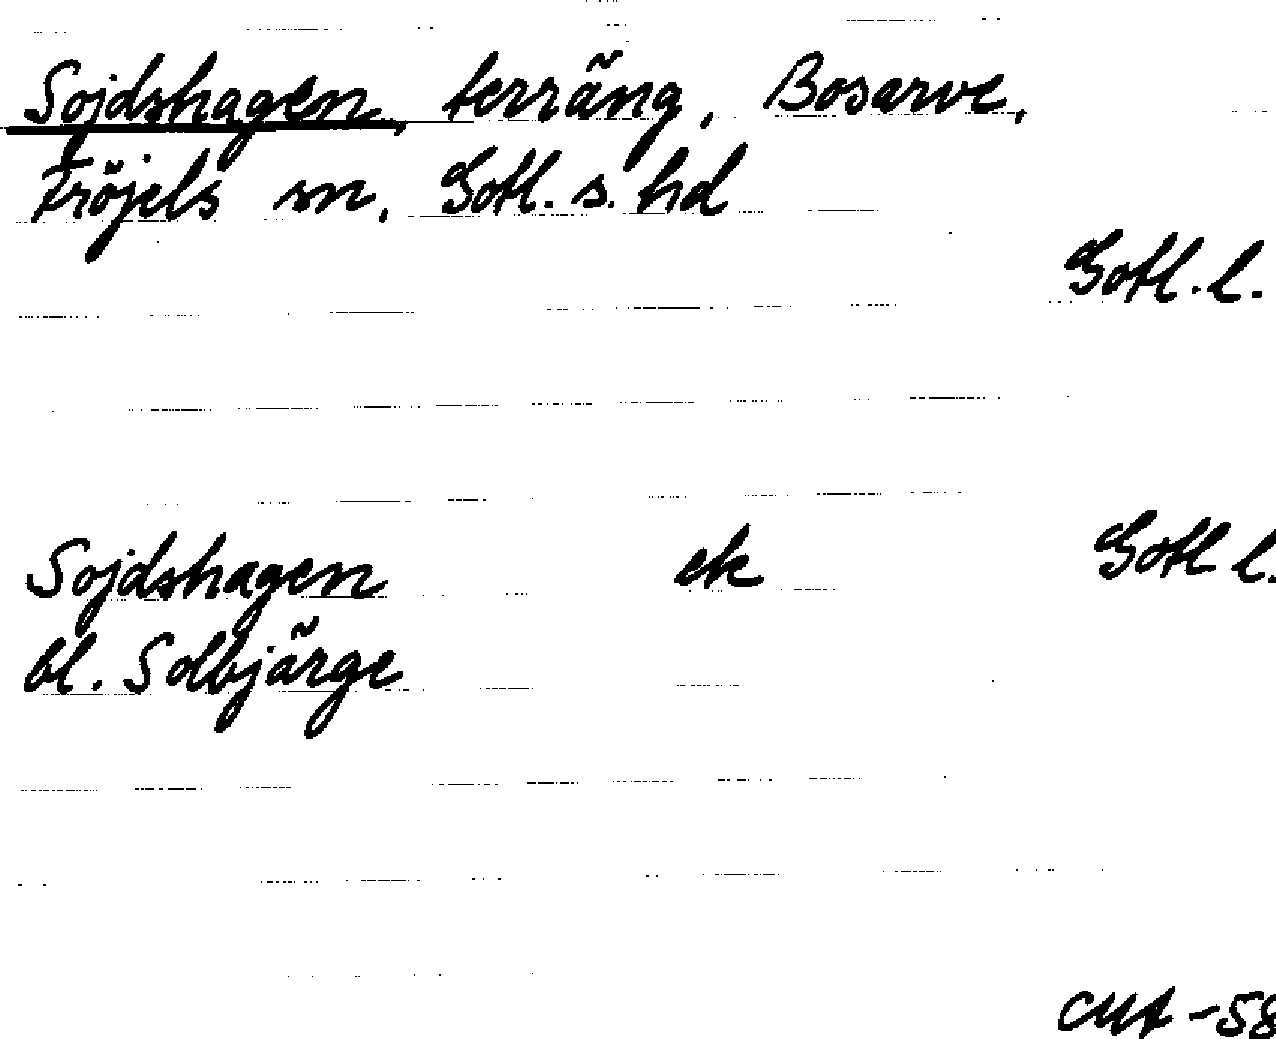 Sojdshagen, terräng, Bosarve,
Fröjels sn, Gotl. s. hd
Gotl. l.
Sojdshagen ek Gotl l.
bl. Solbjärge
CMA -58